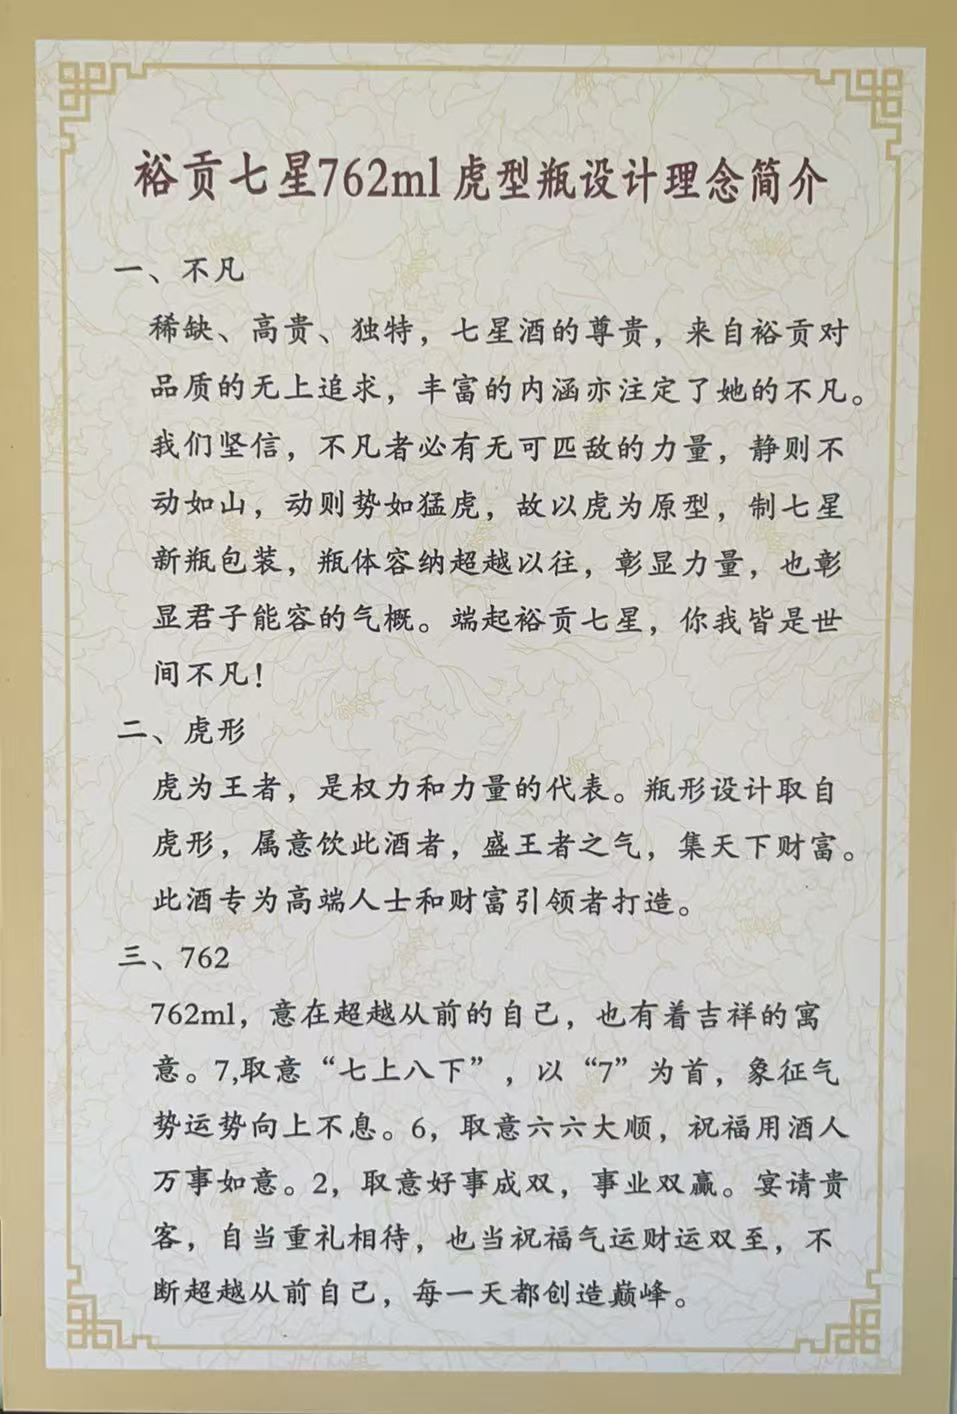 裕贡七星762ml 虎型瓶设计理念简介
一、不凡
稀缺、高贵、独特，七星酒的尊贵，来自裕贡对
品质的无上追求，丰富的内涵亦注定了她的不凡。
我们坚信，不凡者必有无可匹敌的力量，静则不
动如山，动则势如猛虎，故以虎为原型，制七星
新瓶包装，瓶体容纳超越以往，彰显力量，也彰
显君子能容的气概。端起裕贡七星，你我皆是世
间不凡！
二、虎形
虎为王者，是权力和力量的代表。瓶形设计取自
虎形，属意饮此酒者，盛王者之气，集天下财富。
此酒专为高端人士和财富引领者打造。
三、762
762ml，意在超越从前的自己，也有着吉祥的寓
意。7,取意“七上八下”，以“7”为首，象征气
势运势向上不息。6，取意六六大顺，祝福用酒人
万事如意。2，取意好事成双，事业双赢。宴请贵
客，自当重礼相待，也当祝福气运财运双至，不
断超越从前自己，每一天都创造巅峰。